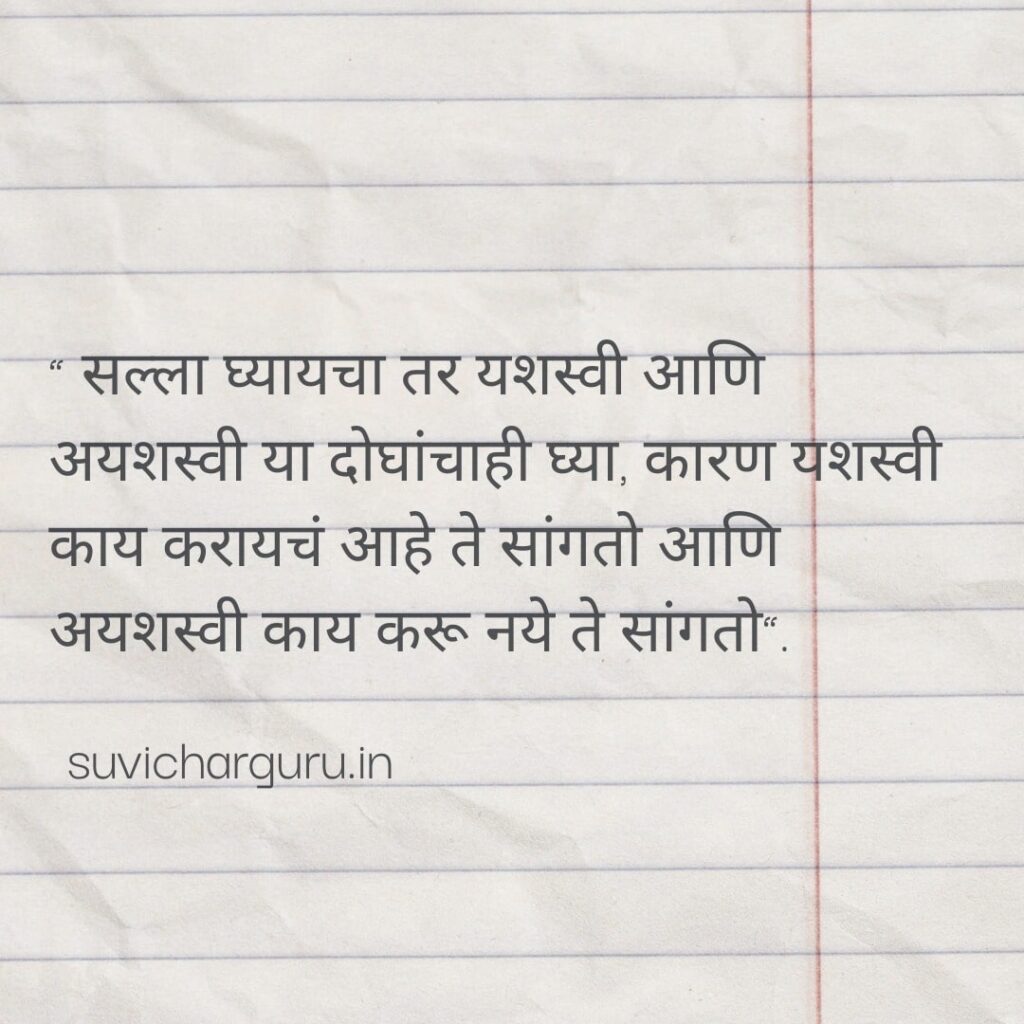 “ सल्ला घ्यायचा तर यशस्वी आणि
अयशस्वी या दोघांचाही घ्या, कारण यशस्वी
काय करायचं आहे ते सांगतो आणि
अयशस्वी काय करू नये ते सांगतो“.
suvicharguru.in